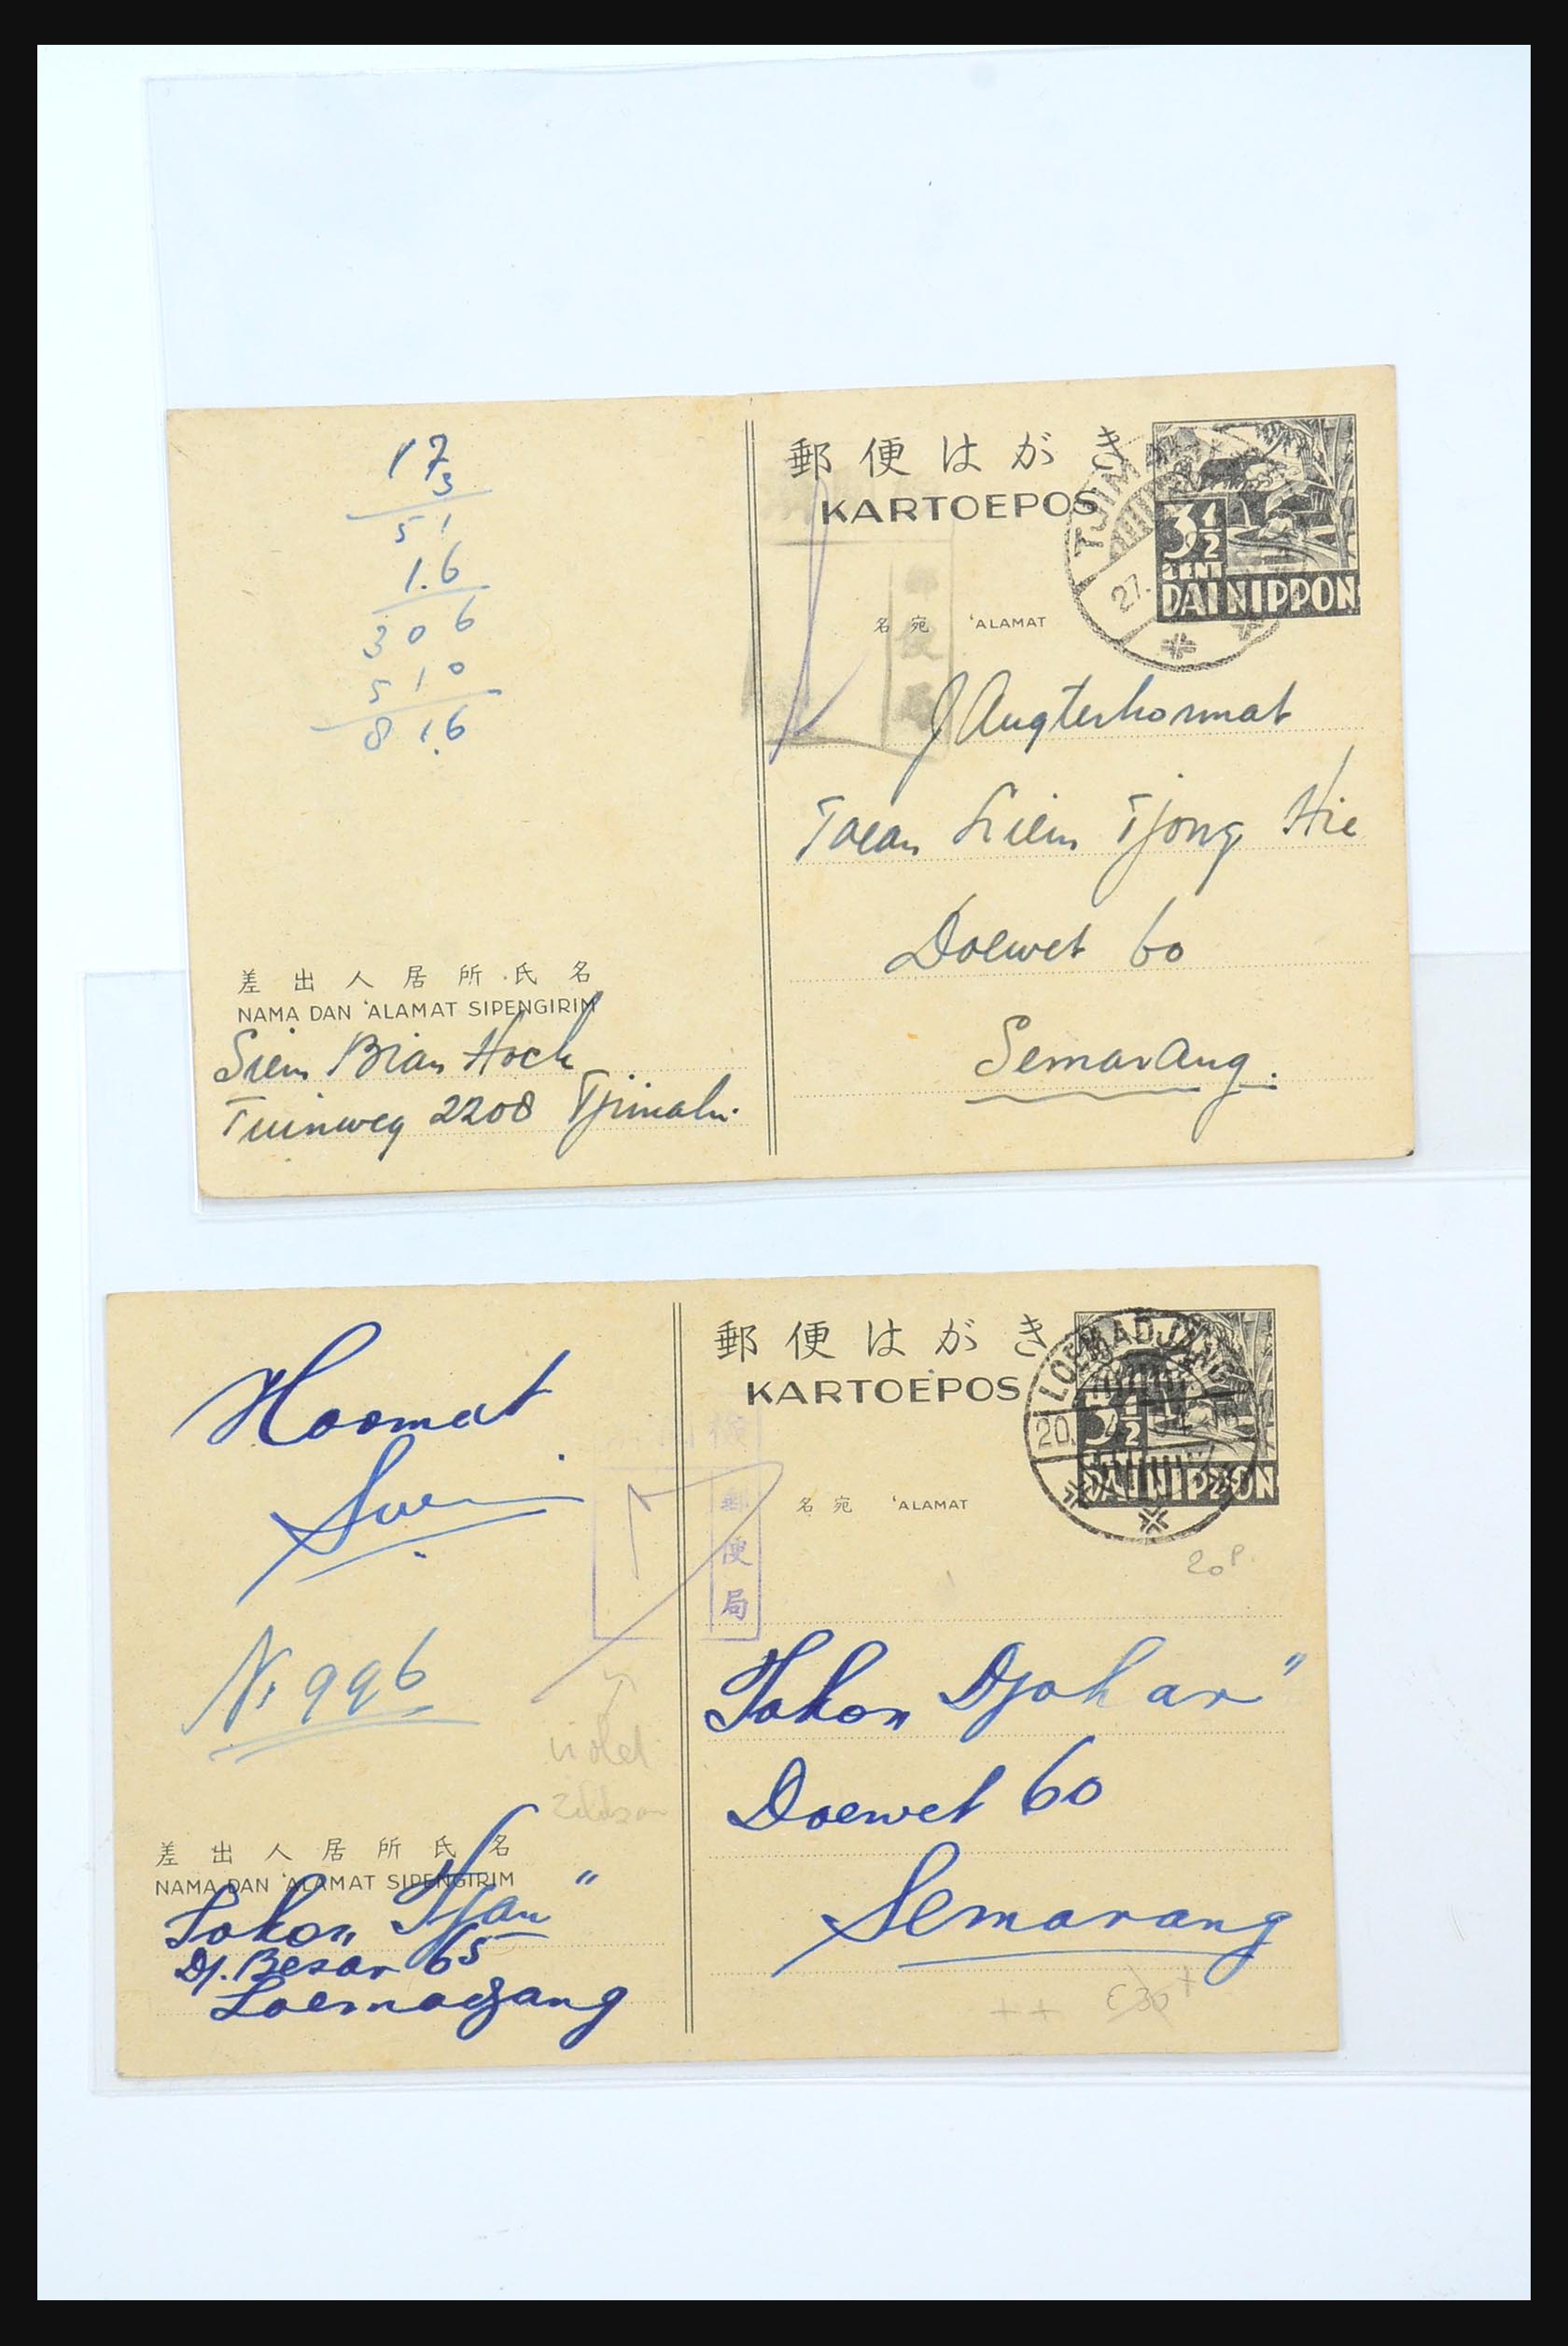 17
3
51
1.6
306
510
81.6
差出人居所氏名
NAMA DAN 'ALAMAT SIPENGIRIM
Siem Bian Hock
Tuinweg 2208 Tjimahi.
郵便はがき
KARTOEPOS
TJIM
27.
3½
CENT
DAI NIPPON
名宛 'ALAMAT
郵便局
JAngterhormat
Toean Liem Tjong Hie
Doewet 60
Semarang.
Hormat
No 996
violet
差出人居所氏名
NAMA DAN 'ALAMAT SIPENGIRIM
Toko „Tjan"
Dj. Besar 65
Loemadjang
郵便はがき
KARTOEPOS
LOEMADJANG
20.
3½
CENT
DAI NIPPON
名宛 'ALAMAT
郵便局
20P.
Toko „Djohar"
Doewet 60
Semarang
++ €30 +